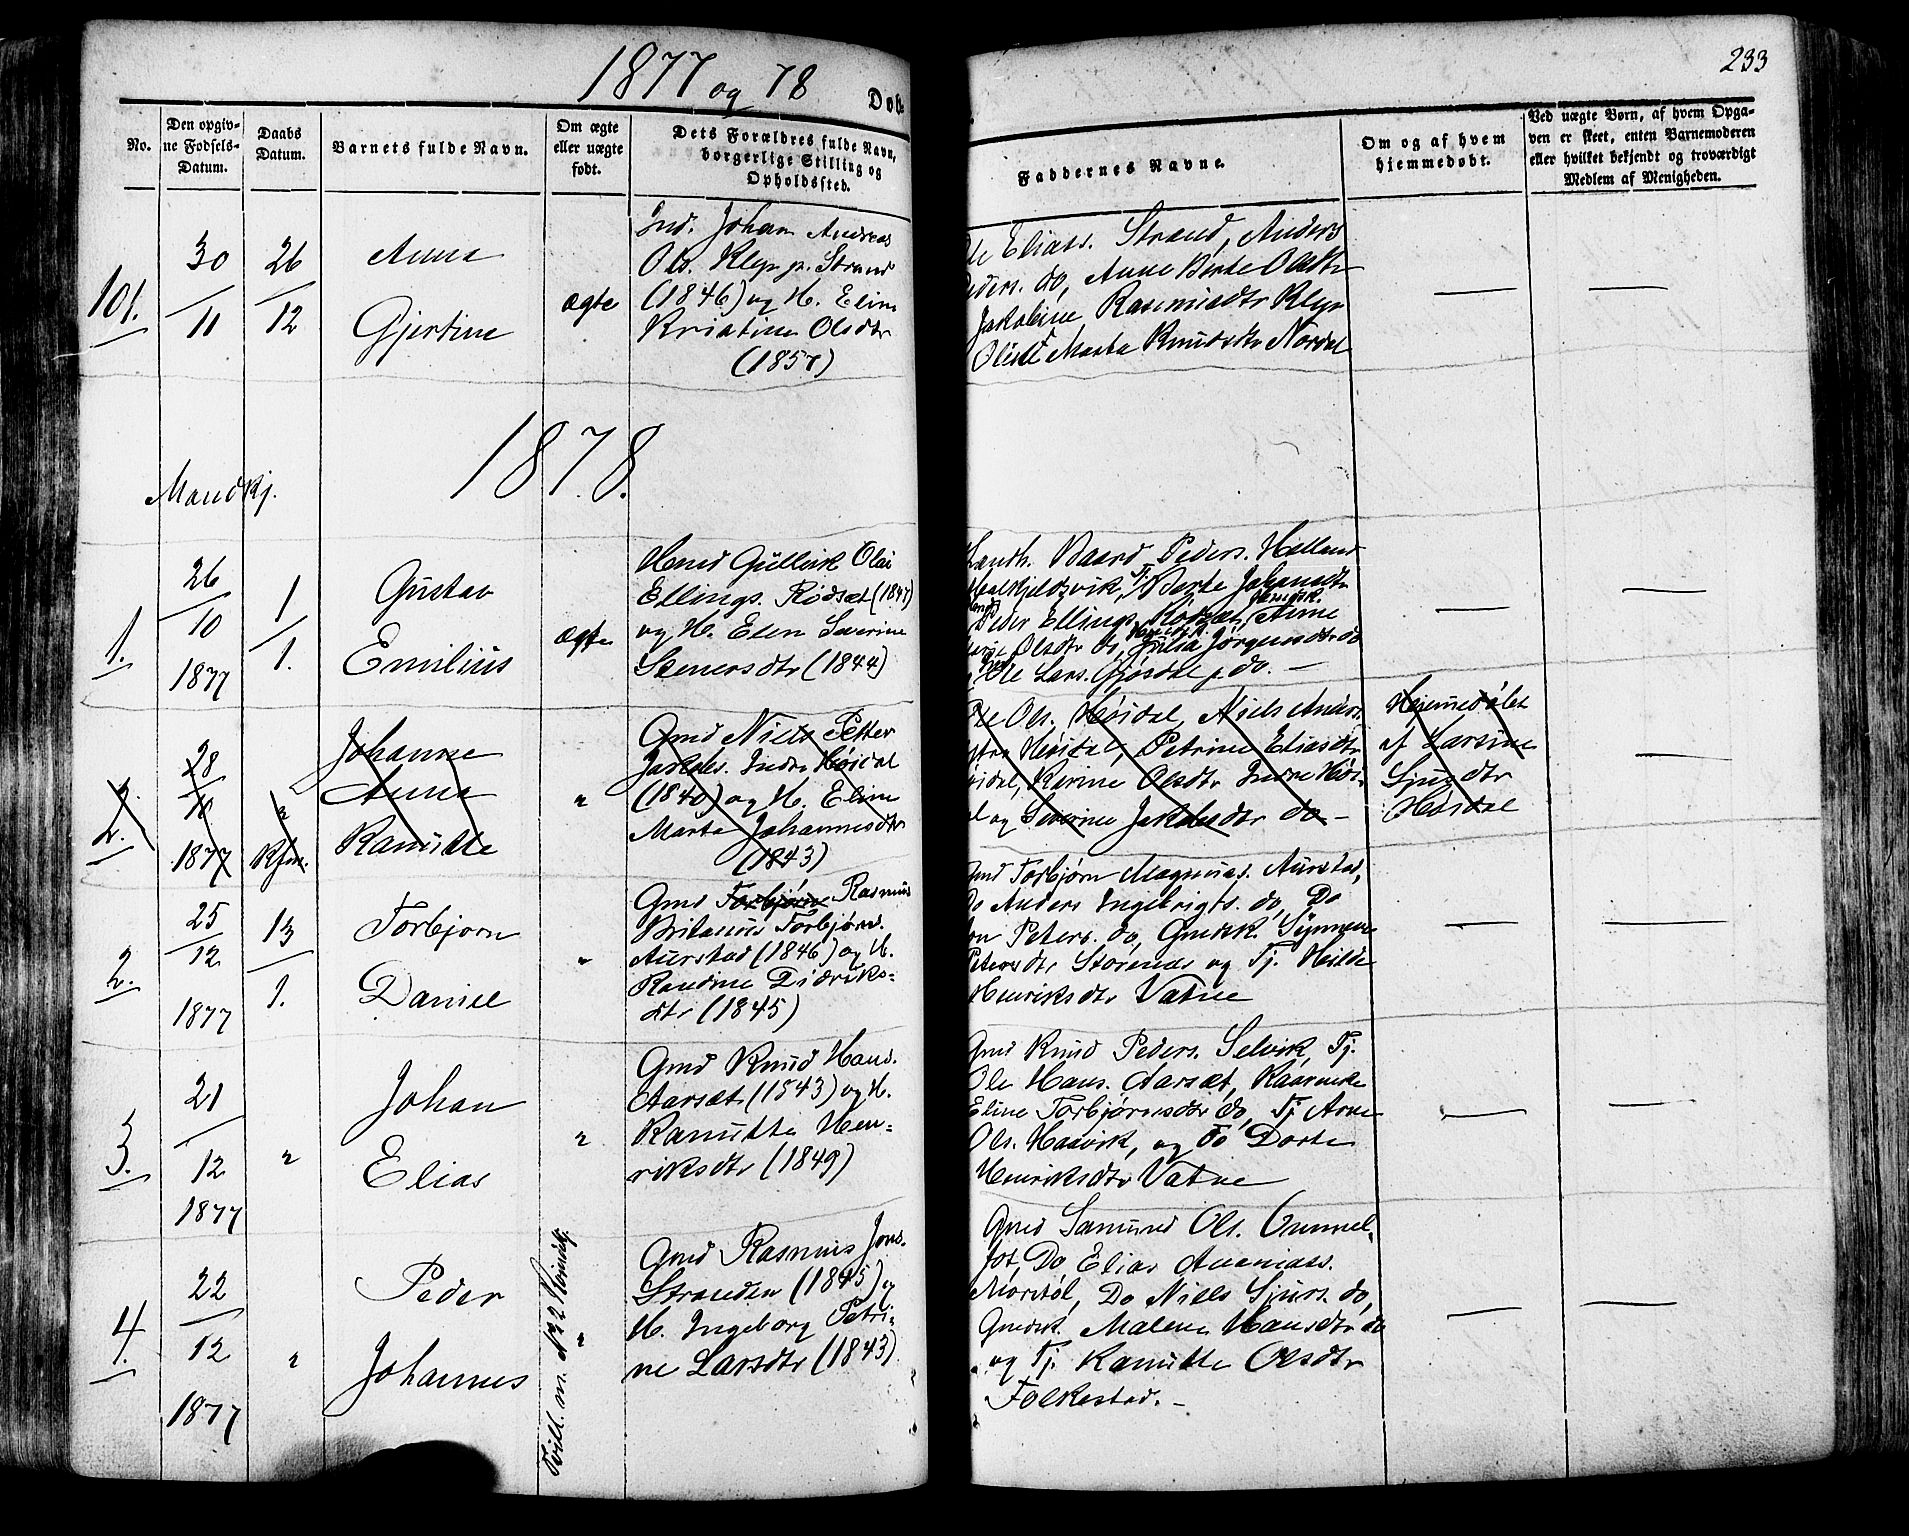 1877 og 78
Døb
233
No.
Den opgivne Fødsels-Datum.
Daabs Datum.
Barnets fulde Navn.
Om ægte eller uægte født.
Dets Forældres fulde Navn, borgerlige Stilling og Opholdssted.
Faddernes Navne.
Om og af hvem hjemmedøbt.
Ved uægte Børn, af hvem Opgaven er skeet, enten Barnemoderen eller hvilket bekjendt og troværdigt Medlem af Menigheden.
101.
30/11
26/12
Anna
Gjertine
ægte
Ind. Johan Andreas
Ols. Klep p. Strand
(1846) og H. Eline
Kristine Olsdtr
(1857)
Ole Eliass. Strand, Anders
Peders. do, Anne Berte Olsdtr
Jakobine Rasmusdtr Klep
Marta Knudsdtr Nordal
1878.
Mandkj.
1.
26/10
1877
1/1.
Gustav
Emilius
ægte
Gullvik Olai
Ellings. Rødsæt (1847)
og H. Elen Severine
Stenersdtr (1844)
Landh. Baard Peders. Helland
Berte Johansdtr
Peder Ellings. Rødsæt, Anne
Olsdtr do, Julia Jørgensdtr do
Ole Lars. Gjøsdal p. do. –
2.
28/10
1877
Johanne
Anna
Kanutte
"
Gmd Niels Petter
Jakobs. Indre Høidal
(1840) og H. Eline
Marte Johannesdtr
(1843)
Ole Ols. Høidal, Niels Anders.
Høidal, Petrine Eliasdtr
Høidal, Karine Olsdtr Indre Høi-
dal og Severine Jakobsdtr do –
Hjemmedøbt
af Larsine
Sjursdtr
Høidal
2.
25/12
1877
13/1.
Torbjørn
Daniel
"
Gmd Torbjørn Rasmus
Torbjørns.
Aurstad (1846) og H.
Randine Didriks-
dtr (1845)
Gmd Torbjørn Magnus. Aurstad,
Do Anders Ingebrigts. do, Do
Peters. do, Gmdsk. Synneve
Petersdtr Storenes og Tj. Hilde
Henriksdtr Vatne
3.
21/12
1877
"
Johan
Elias
"
Gmd Knud Hans.
Aarsæt (1843) og H.
Kanutte Hen-
riksdtr (1849)
Gmd Knud Peders. Selvik, Tj.
Ole Hans. Aarsæt, Kaarenske
Eline Torbjørnsdtr do, Tj Arne
Ols. Haavik, og Do Dorte
Henriksdtr Vatne
4.
22/12
1877
"
Peder
Johannes
Tvill. m. No 2 Kvindkj.
"
Gmd Rasmus Jons.
Stranden (1845) og
H. Ingeborg Petri-
ne Larsdtr (1843).
Gmd Samund Ols.
Do Elias Ananiass.
Mørstøl, Do Niels Sjurs. do,
Gmdsk. Malene Hansdtr do
og Tj. Kanutte Olsdtr
Folkestad. –